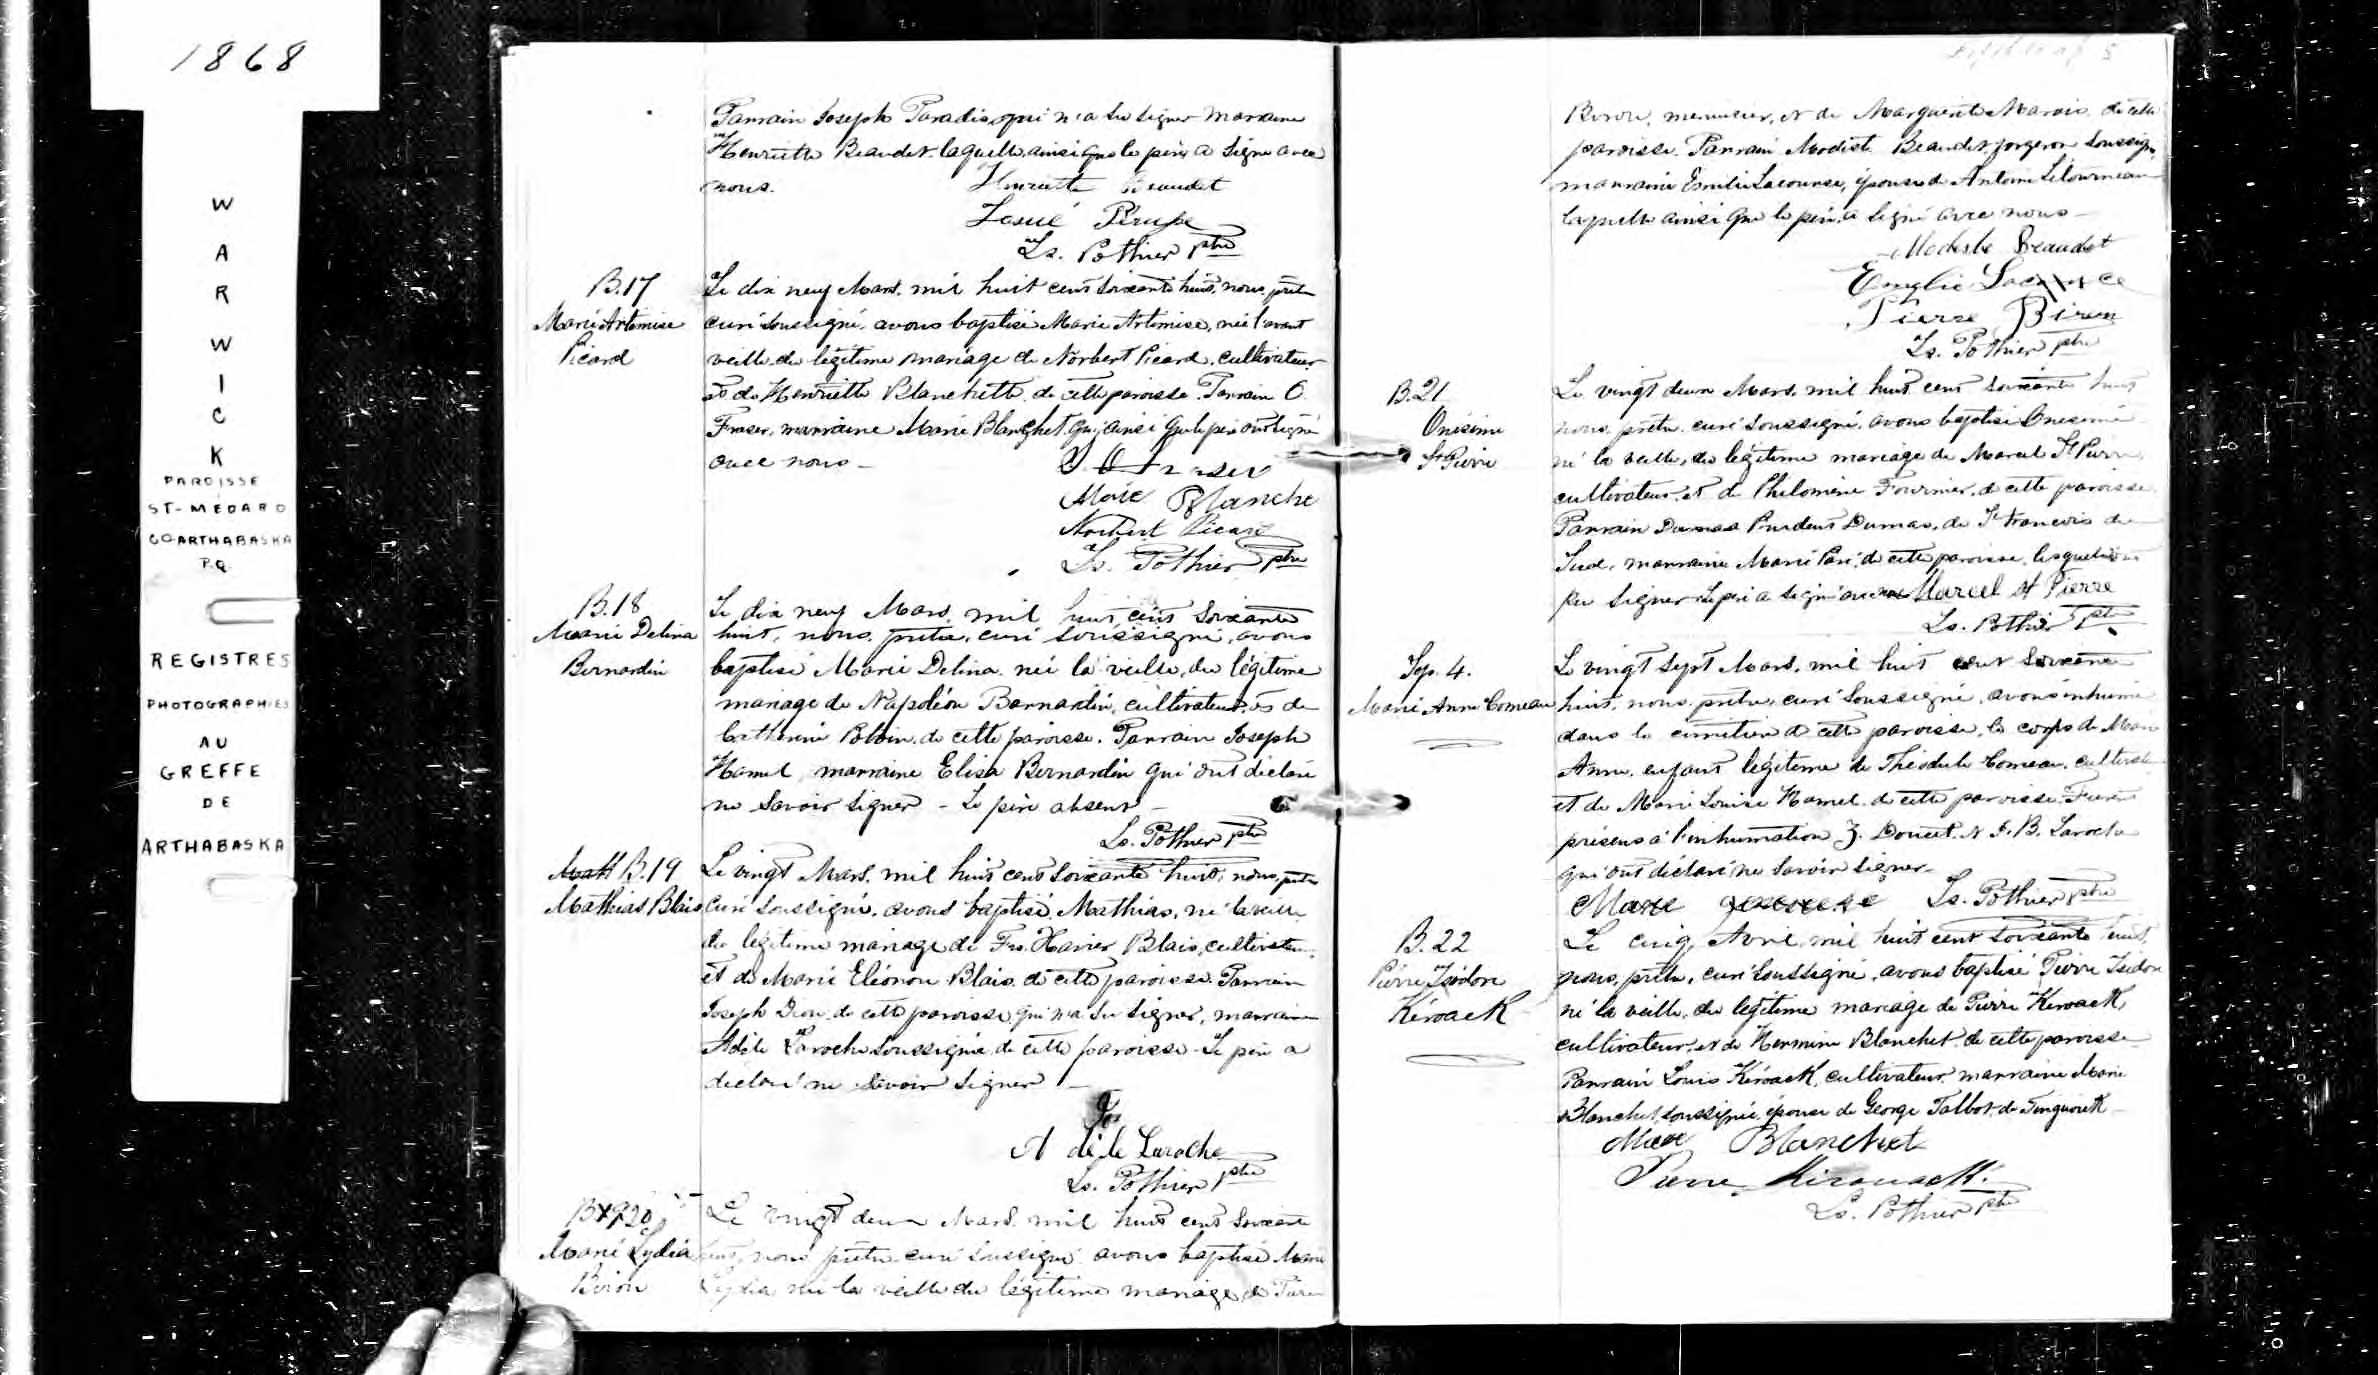 1868
W
A
R
W
I
C
K
PAROISSE
ST-MEDARD
CO ARTHABASKA
P.Q.
REGISTRES
PHOTOGRAPHIES
AU
GREFFE
DE
ARTHABASKA
Parrain Joseph Paradis, qui n'a su signer marraine
Henriette Beaudet laquelle, ainsi que le père a signé avec
nous.
Henriette Beaudet
Josué
Ls. Pothier ptre
B.17
Marie Artemise
Picard
Le dix neuf Mars, mil huit cent soixante huit, nous, prêtre
curé soussigné, avons baptisé Marie Artemise, née l'avant
veille du légitime mariage de Norbert Picard, cultivateur
et de Henriette Blanchette de cette paroisse. Parrain O.
Fraser, marraine Marie Blanchet, qui, ainsi que le père ont signé
avec nous _
Marie Blanche
Norbert Picard
Ls. Pothier ptre
B.18
Marie Delina
Bernardin
Le dix neuf Mars, mil huit cent soixante
huit, nous, prêtre, curé soussigné, avons
baptisé Marie Delina née la veille, du légitime
mariage de Napoléon Barnardin, cultivateur, et de
Catherine de cette paroisse. Parrain Joseph
Hamel, marraine Elisa Bernardin qui ont déclaré
ne savoir signer - Le père absent -
Ls. Pothier ptre
B.19
Mathias Blais
Le vingt Mars, mil huit cent soixante huit, nous, prêtre
curé soussigné, avons baptisé, Mathias, né la veille
du légitime mariage de Frs. Havier Blais, cultivateur,
et de Marie Eléonore Blais de cette paroisse. Parrain
Joseph Dion, de cette paroisse, qui n'a su signer, marraine
Adèle Laroche soussignée, de cette paroisse - Le père a
déclaré ne savoir signer _
Adèle Laroche
Ls. Pothier ptre
20
Marie Lydia
Biron
Le vingt deux Mars mil huit cent soixante
huit, nous prêtre curé soussigné avons baptisé Marie
Lydia née la veille du légitime mariage de Pierre
5
Biron, menuisier, et de Marguerite Marois, de cette
paroisse. Parrain Modeste Beaudet forgeron soussigné,
marraine Emilie Lacourse, épouse de Antoine Létourneau
laquelle ainsi que le père, a signé avec nous -
Modeste Beaudet
Emglie
Pierre Biron
Ls. Pothier ptre
B.21
Onésime
St Pierre
Le vingt deux Mars, mil huit cent soixante huit
nous, prêtre, curé soussigné, avons baptisé Onésime
né la veille, du légitime mariage de Marcel St Pierre,
cultivateur, et de Philomène Fournier, de cette paroisse.
Parrain Dumas Prudent Dumas, de St François du
Sud, marraine Marie Paré, de cette paroisse, lesquels n'ont
pu signer. Le père a signé avec nous Marcel st Pierre
Ls. Pothier ptre
Sep. 4.
Marie Anne Comeau
Le vingt sept Mars, mil huit cent soixante
huit, nous, prêtre, curé soussigné, avons inhumé
dans le cimetière de cette paroisse, le corps de Marie
Anne, enfant légitime de Théodule Comeau, cultivateur
et de Marie Louise Hamel de cette paroisse. Furent
présens à l'inhumation Z. Doucet & J. B. Laroche
qui ont déclaré ne savoir signer _
Ls. Pothier ptre
B.22
Pierre Isidore
Kéroack
Le cinq Avril, mil huit cent soixante huit,
nous, prêtre, curé soussigné, avons baptisé Pierre Isidore
né la veille, du légitime mariage de Pierre Kéroack,
cultivateur, et de Hermine Blanchet de cette paroisse _
Parrain Louis Kéroack, cultivateur, marraine Marie
Blanchet, soussignée, épouse de George Talbot, de Tingwick _
Marie Blanchet
Pierre
Ls. Pothier ptre